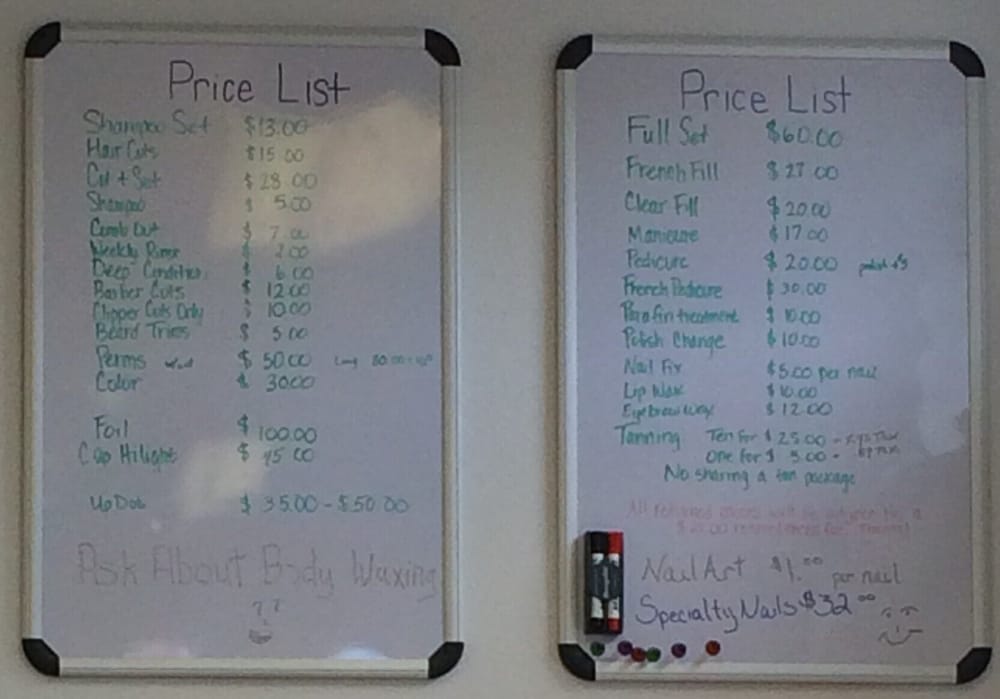 Price List
Shampoo Set $13.00
Hair Cuts $15.00
Cut + Set $28.00
Shampoo $ 5.00
Comb Out $ 7.00
Weekly $ 2.00
Deep Condition $ 6.00
Barber Cuts $ 12.00
Clipper Cuts Only $ 10.00
Beard Trims $ 5.00
Perms $ 50.00 Long
Color $ 30.00
Foil $ 100.00
Cap Hilight $ 45.00
UpDos $ 35.00 - $50.00
Ask About Body Waxing
??
Price List
Full Set $60.00
French Fill $27.00
Clear Fill $20.00
Manicure $17.00
Pedicure $20.00
French Pedicure $30.00
Parafin treatment $10.00
Polish Change $10.00
Nail Fix $5.00 per nail
Lip Wax $10.00
Eyebrow Wax $12.00
Tanning Ten for $25.00 -
One for $ 3.00 -
No sharing a tan package
All returned will be a
Nail Art $1.00 per nail
Specialty Nails $32.00